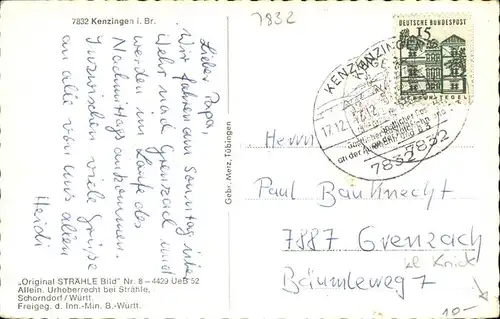 7832 Kenzingen i. Br.
7832
Lieber Papa,
Wir fahren am Sonntag über
Wehr nach Grenzach und
werden im Laufe des
Nachmittags ankommen.
Inzwischen viele Grüße
an alle von uns allen
Heidi
"Original STRÄHLE Bild" Nr. 8 – 4429 UeB 52
Allein. Urheberrecht bei Strähle,
Schorndorf / Württ.
Freigeg. d. Inn.-Min. B.-Württ.
Gebr. Metz, Tübingen
DEUTSCHE BUNDESPOST
15
TEGEL
KENZINGEN
17.12.
an der
7832
7832
Herrn
Paul Bauknecht
7887 Grenzach
Bäumleweg 7
kl Knick
10.-